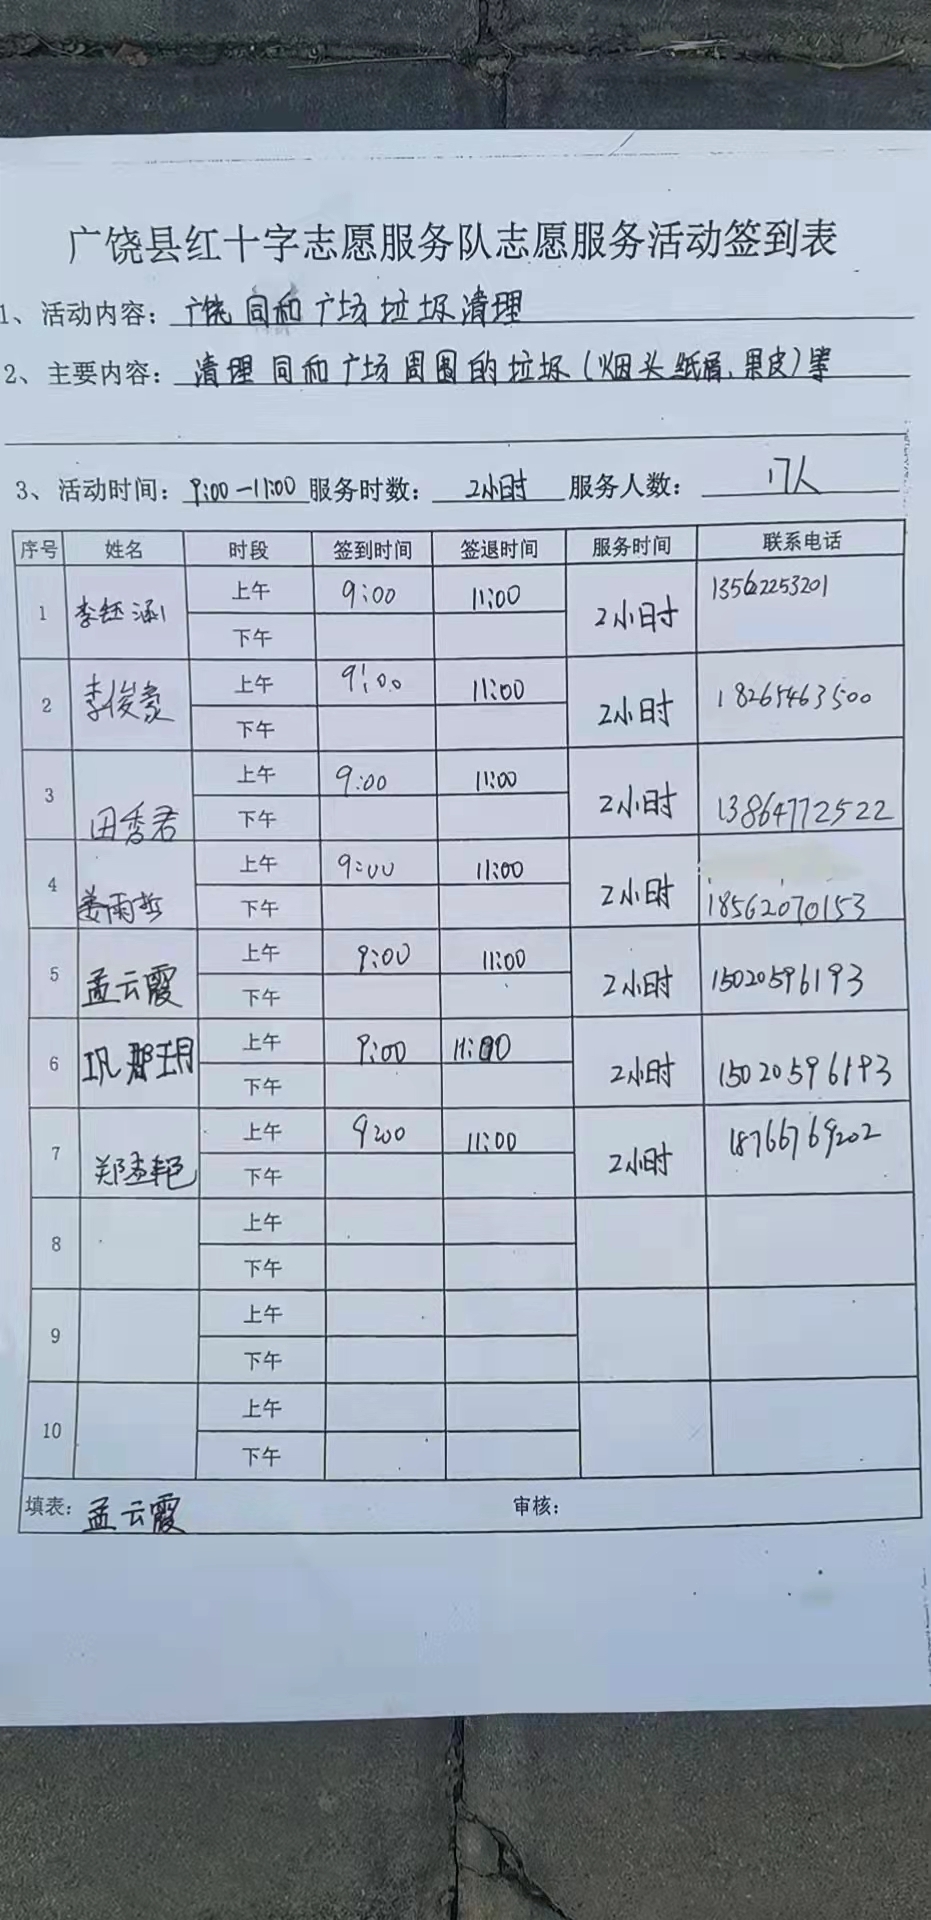 广饶县红十字志愿服务队志愿服务活动签到表
1、活动内容：广饶同和广场垃圾清理
2、主要内容：清理同和广场周围的垃圾（烟头纸屑、果皮）等
3、活动时间：9:00-11:00 服务时数：2小时 服务人数：17人
序号 姓名 时段 签到时间 签退时间 服务时间 联系电话
1 李钰涵 上午 9:00 11:00 2小时 13562253201
下午
2 李俊豪 上午 9:00 11:00 2小时 18265463500
下午
3 田秀君 上午 9:00 11:00 2小时 13864772522
下午
4 姜雨哲 上午 9:00 11:00 2小时 18562070153
下午
5 孟云霞 上午 9:00 11:00 2小时 15020596193
下午
6 巩 上午 9:00 11:00 2小时 15020596193
下午
7 郑孟艳 上午 9:00 11:00 2小时 18766769202
下午
8 上午
下午
9 上午
下午
10 上午
下午
填表：孟云霞 审核：